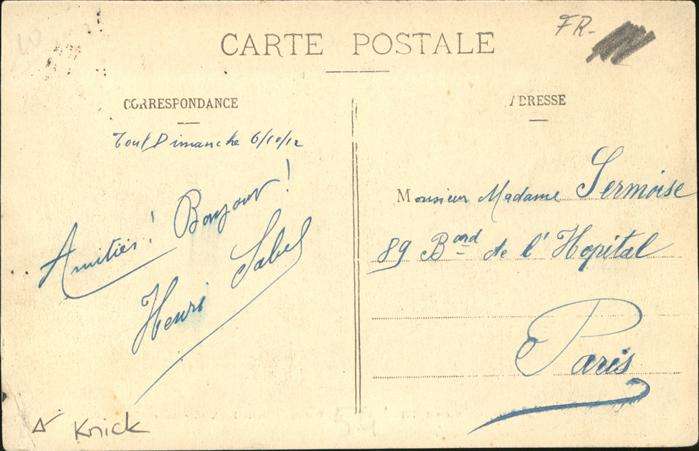 CARTE POSTALE
FR-
CORRESPONDANCE
Toul Dimanche 6/10/12
Amitiés! Bonjour!
Henri Sabel
ADRESSE
Monsieur Madame Sermoise
89 Bard de l'Hopital
Paris
Knick